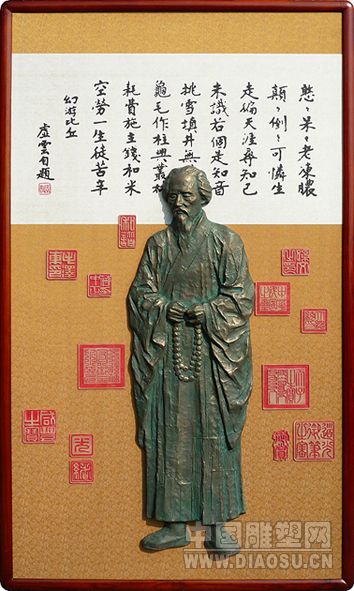 憨、呆、老凍膿
顛、倒、可憐生
走徧天涯尋知己
未識若個是知音
挑雪填井無
龜毛作柱興叢林
耗費施主錢和米
空勞一生徒苦辛
幻游比丘
虛雲自題
咸豐之寶
光緒
中国雕塑网
WWW.DIAOSU.CN